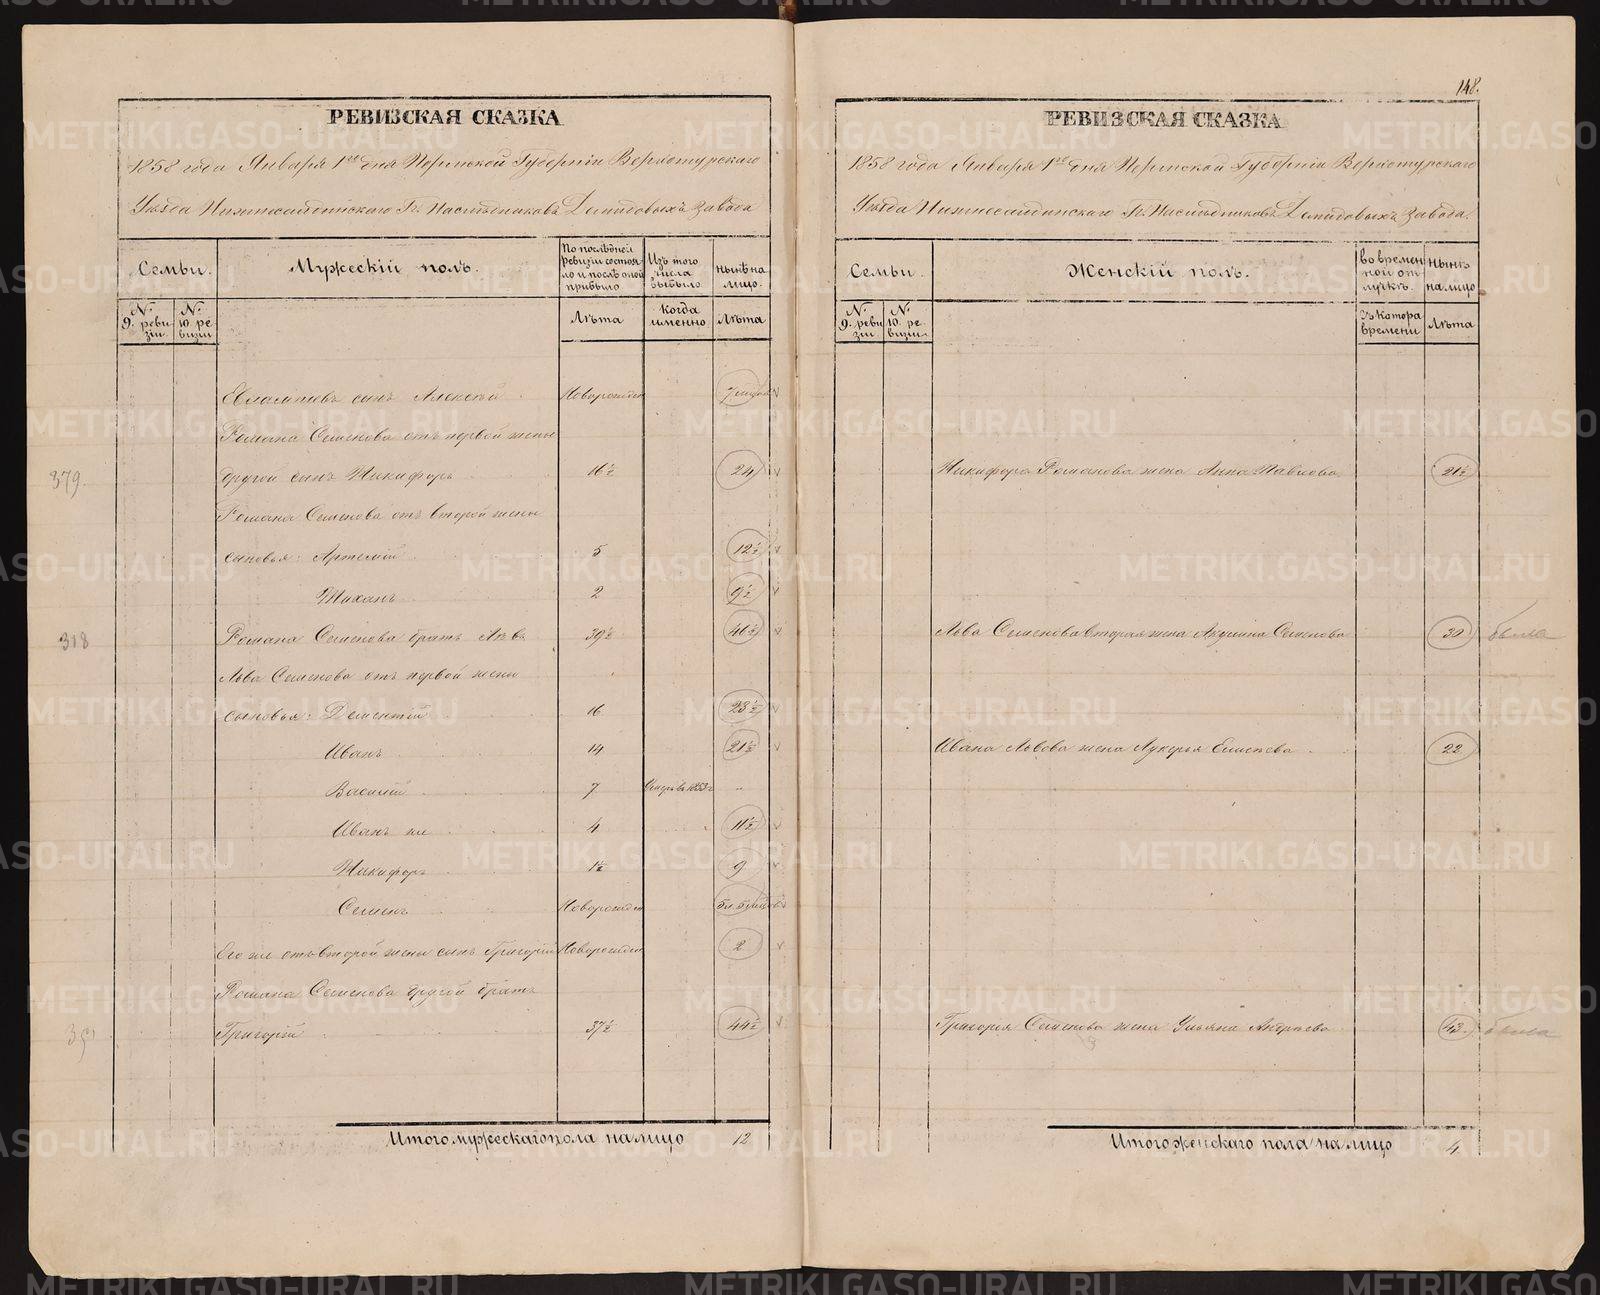 148.
РЕВИЗСКАЯ СКАЗКА
1858 года Января 1го дня Пермской Губерніи Верхотурскаго
Уѣзда Нижнесалдинскаго Гг. Наслѣдниковъ Демидовыхъ Завода
Семьи.
Мужескій полъ.
По послѣдней ревизіи состояло и послѣ оной прибыло
Изъ того числа выбыло
нынѣ на лицо.
№ 9. ревизіи
№ 10. ревизіи
Лѣта
Когда именно
Лѣта
сынъ Алексѣй Новорожден
Романа Семенова отъ первой жены
379. другой сынъ Никифоръ 16½ 24
Романа Семенова отъ второй жены
сыновья: Артемій 5 12½
Тихонъ 2 9½
318 Романа Семенова братъ Левъ 39½ 46½
Льва Семенова отъ первой жены
сыновья: Дементій 16 23½
Иванъ 14 21½
Василій 7
Иванъ же 4 11½
Никифоръ 1½ 9
Семенъ Новорожден
Его же отъ второй жены сынъ Григорій Новорожден 2
Романа Семенова другой братъ
Григорій 37½ 44½
Итого мужескаго пола на лицо 12
РЕВИЗСКАЯ СКАЗКА
1858 года Января 1го дня Пермской Губерніи Верхотурскаго
Уѣзда Нижнесалдинскаго Гг. Наслѣдниковъ Демидовыхъ Завода.
Семьи.
Женскій полъ.
во временной отлучкѣ.
нынѣ на лицо
№ 9. ревизіи
№ 10. ревизіи
Съ котора времени
Лѣта
Никифора Романова жена Анна Павлова 21½
Льва Семенова вторая жена Акулина Семенова 30
Ивана Львова жена Лукерья 22
Григорья Семенова жена Ульяна Андреева 43.
Итого женскаго пола на лицо 4
METRIKI.GASO-URAL.RU